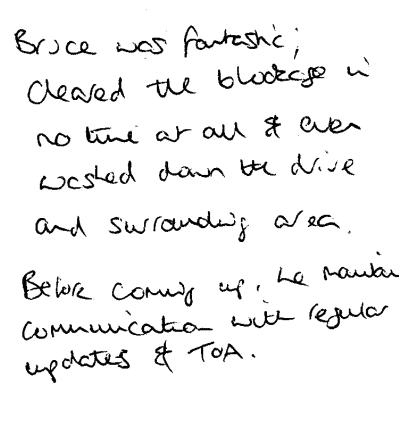 Bruce was fantastic;
cleared the blockage in
no time at all & even
washed down the drive
and surrounding area.
Before coming up, he maintai
communication with regular
updates & TOA.